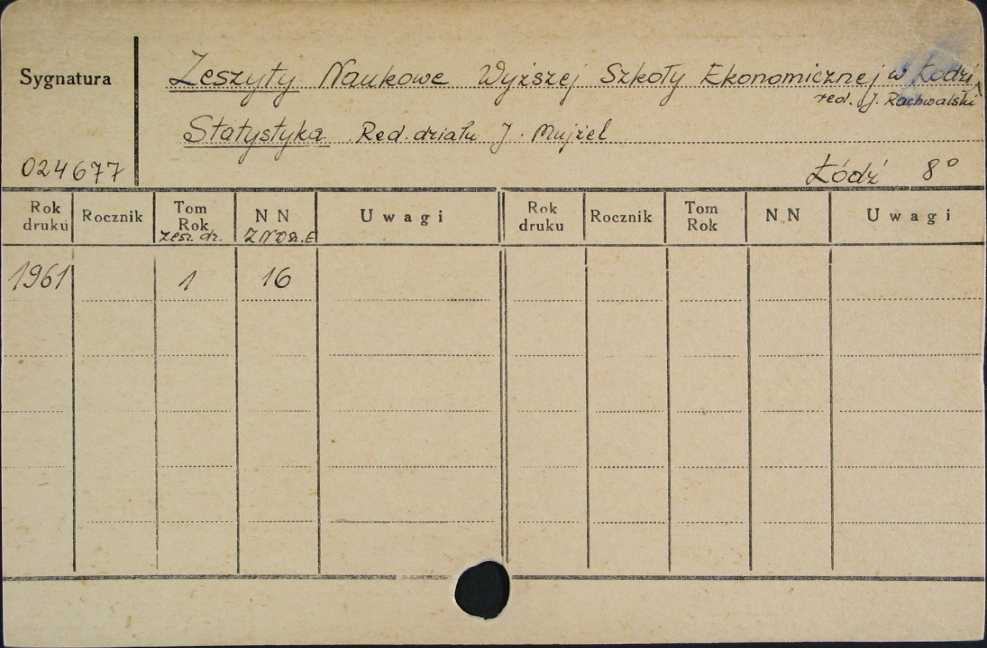 Sygnatura
Zeszyty Naukowe Wyższej Szkoły Ekonomicznej w Łodzi
red. J. Rachwalski
Statystyka Red. działu J. Mujżel
024677 Łódź 8°
Rok druku Rocznik Tom Rok zesz. dz. N N U w a g i Rok druku Rocznik Tom Rok N N U w a g i
1961 1 16